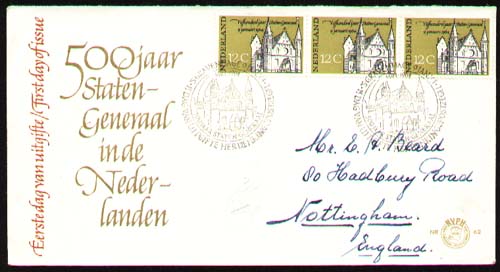 Eerste dag van uitgifte / First day of issue
500 jaar
Staten-
Generaal
in de
Neder-
landen
NEDERLAND
12C
Vijfhonderd jaar Staten-Generaal
9 januari 1964
NEDERLAND
12C
Vijfhonderd jaar Staten-Generaal
9 januari 1964
NEDERLAND
12C
Vijfhonderd jaar Staten-Generaal
9 januari 1964
Mr. E. A. Beard
80 Hadbury Road
Nottingham.
England.
NVPH
NR 62